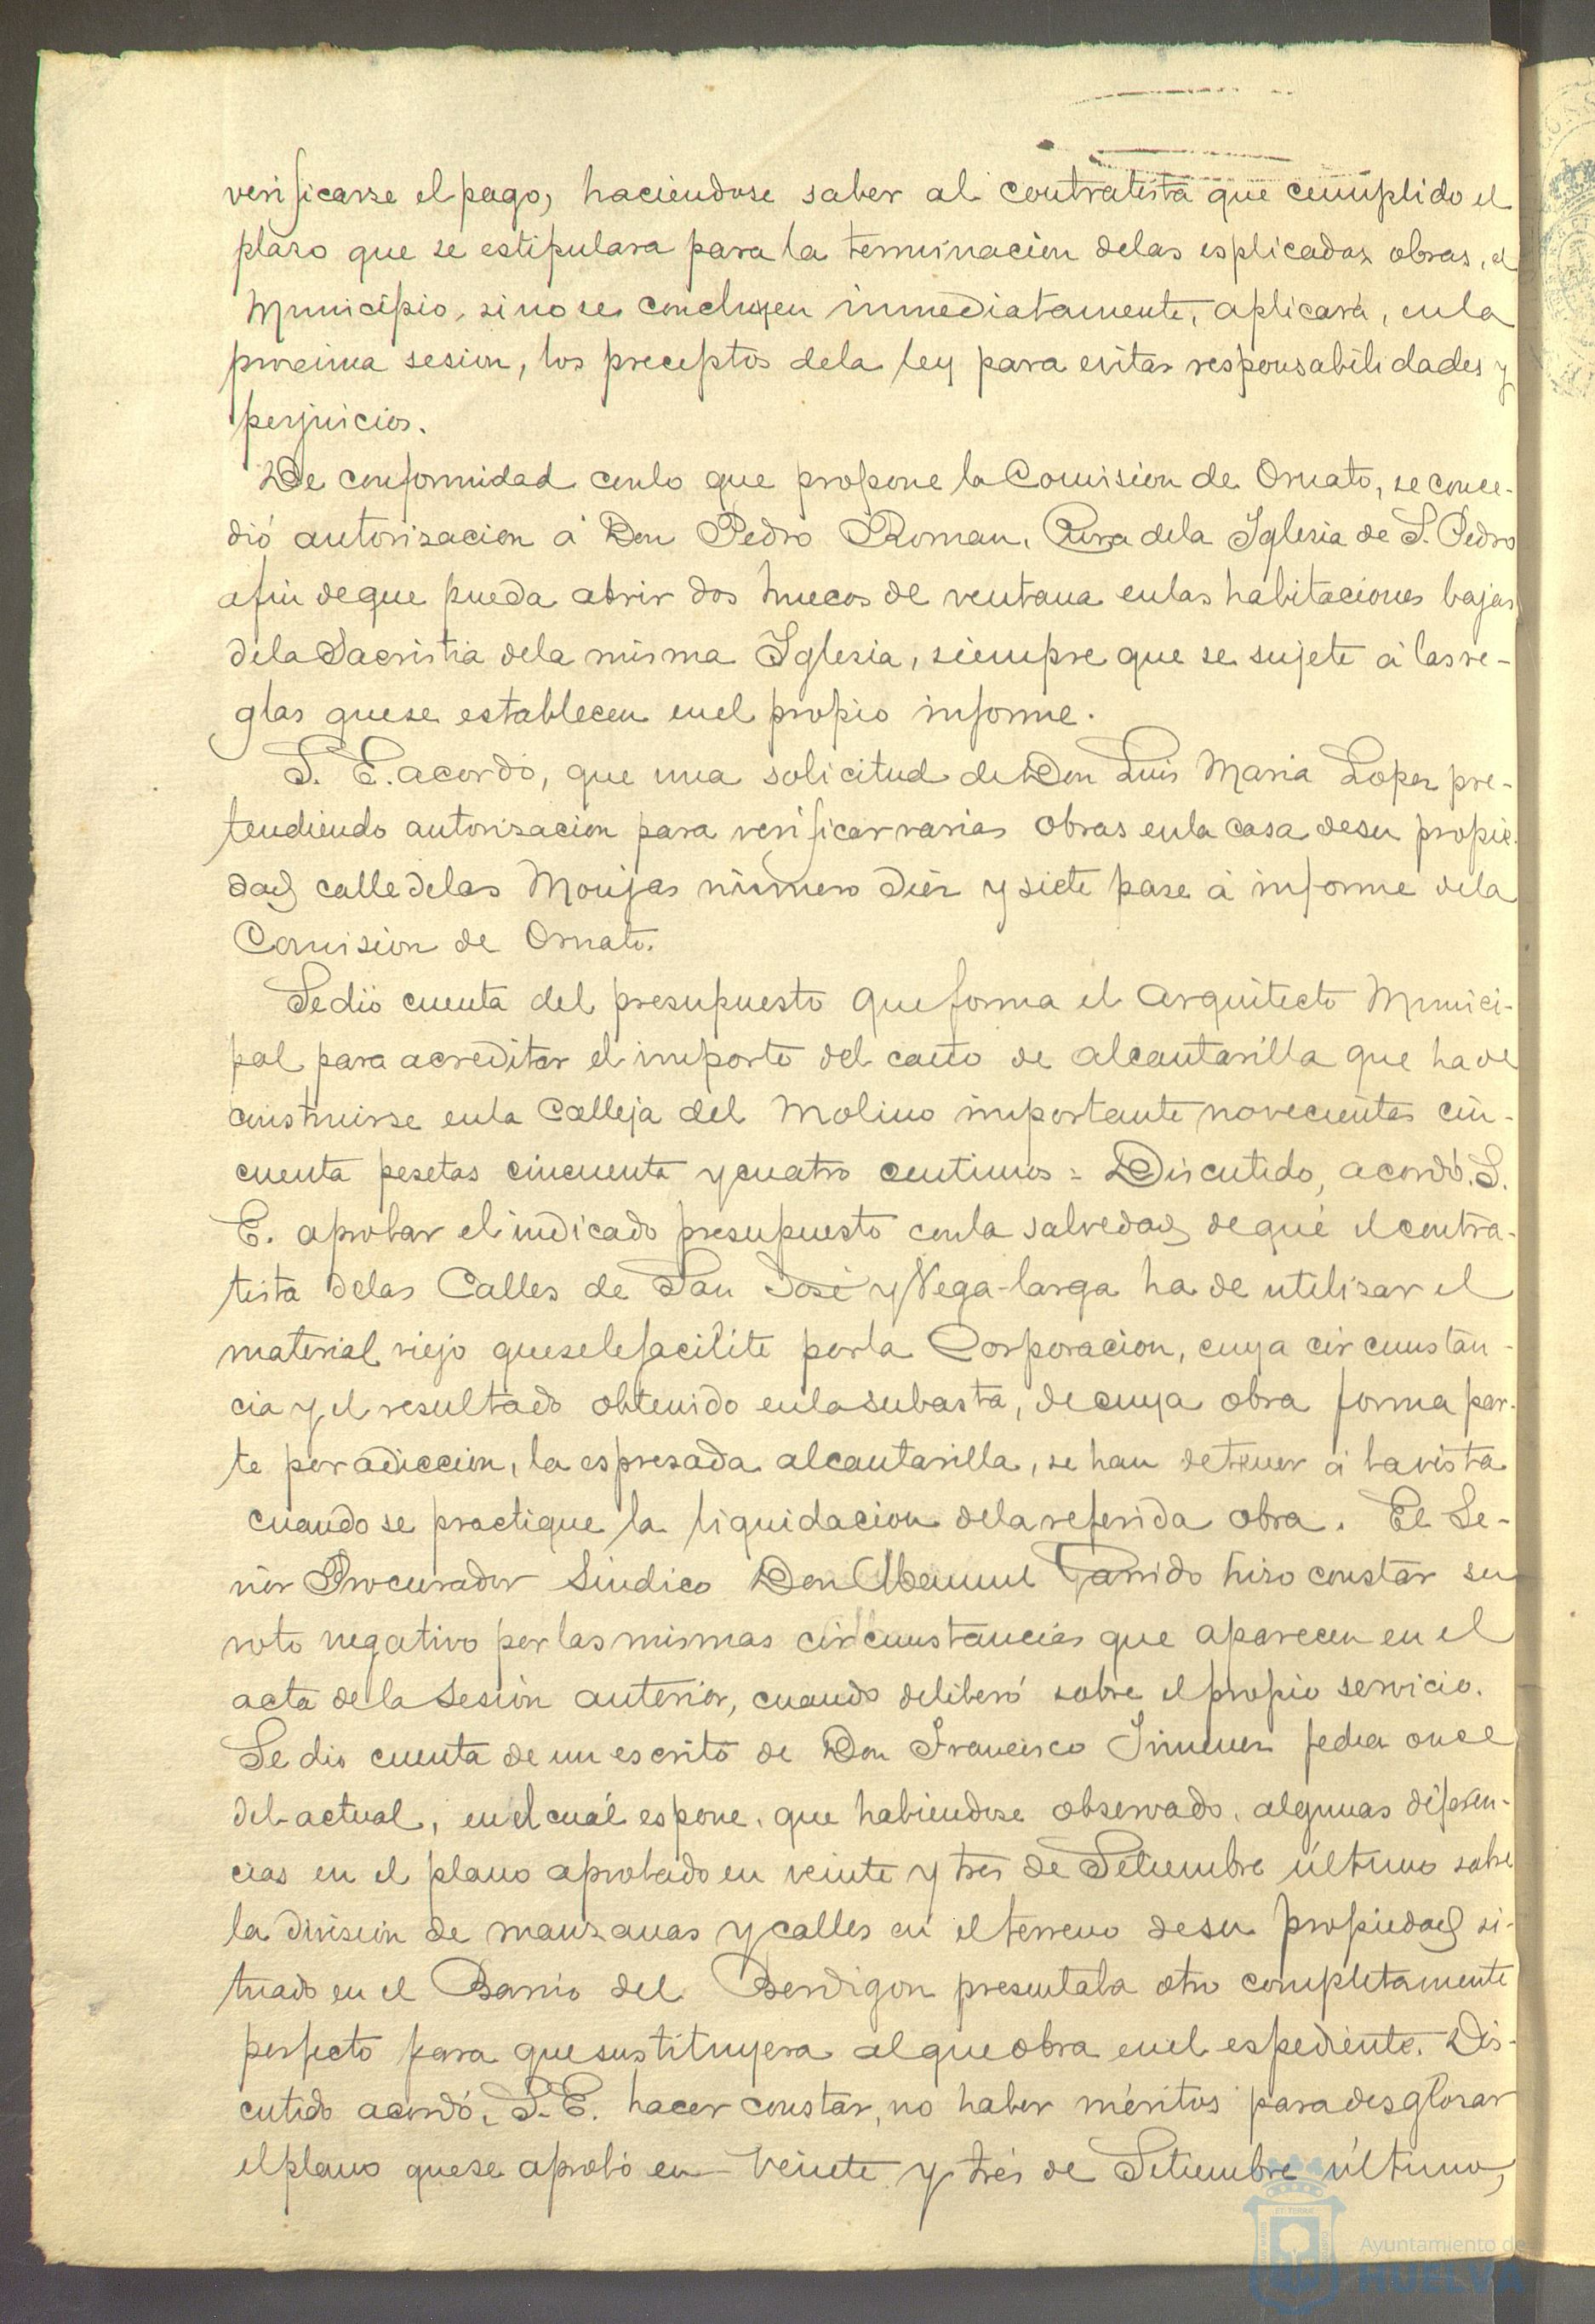 verificarse el pago, haciendose saber al contratista que cumplido el
plazo que se estipulara para la terminacion delas esplicadas obras, el
Municipio, sino se concluyen inmediatamente, aplicará, enla
procsima sesion, los preceptos dela ley para evitar responsabilidades y
perjuicios.
De conformidad conlo que propone la Comision de Ornato, se conce-
dió autorizacion á Don Pedro Roman, Cura dela Iglesia de S. Pedro
afin deque pueda abrir dos huecos de ventana enlas habitaciones bajas
dela Sacristia dela misma Iglesia, siempre que se sujete á las re-
glas quese establecen enel propio informe.
S. E. acordó, que una solicitud de Don Luis Maria Lopez pre-
tendiendo autorizacion para verificar varias obras enla casa desu propie-
dad calle delas Monjas número diez y siete pase á informe dela
Comision de Ornato.
Se dió cuenta del presupuesto que forma el Arquitecto Munici-
pal para acreditar el importe del caño de alcantarilla que ha de
construirse enla Calleja del Molino importante novecientas cin-
cuenta pesetas cincuenta y cuatro centimos = Discutido, acordó S.
E. aprobar el indicado presupuesto conla salvedad de qué el contra-
tista delas Calles de San José y Vega-larga ha de utilizar el
material viejo quese le facilite porla Corporacion, cuya circunstan-
cia y el resultado obtenido enla subasta, de cuya obra forma par-
te por adiccion, la espresada alcantarilla, se han detener á la vista
cuando se practique la liquidacion dela referida obra. El Se-
ñor Procurador Síndico Don Manuel Garrido hizo constar su
voto negativo por las mismas circunstancias que aparecen en el
acta dela Sesión anterior, cuando deliberó sobre el propio servicio.
Se dio cuenta de un escrito de Don Francisco Jimenez fecha once
del actual, en el cuál espone, que habiendose observado, algunas diferen-
cias en el plano aprobado en veinte y tres de Setiembre último sobre
la división de manzanas y calles en el terreno desu propiedad si-
tuado en el Barrio del Berdigon presentaba otro completamente
perfecto para que sustituyera al que obra enel espediente. Dis-
cutido acordó, S. E. hacer constar, no haber méritos para desglosar
el plano quese aprobó en veinte y tres de Setiembre último,
Ayuntamiento de
HUELVA